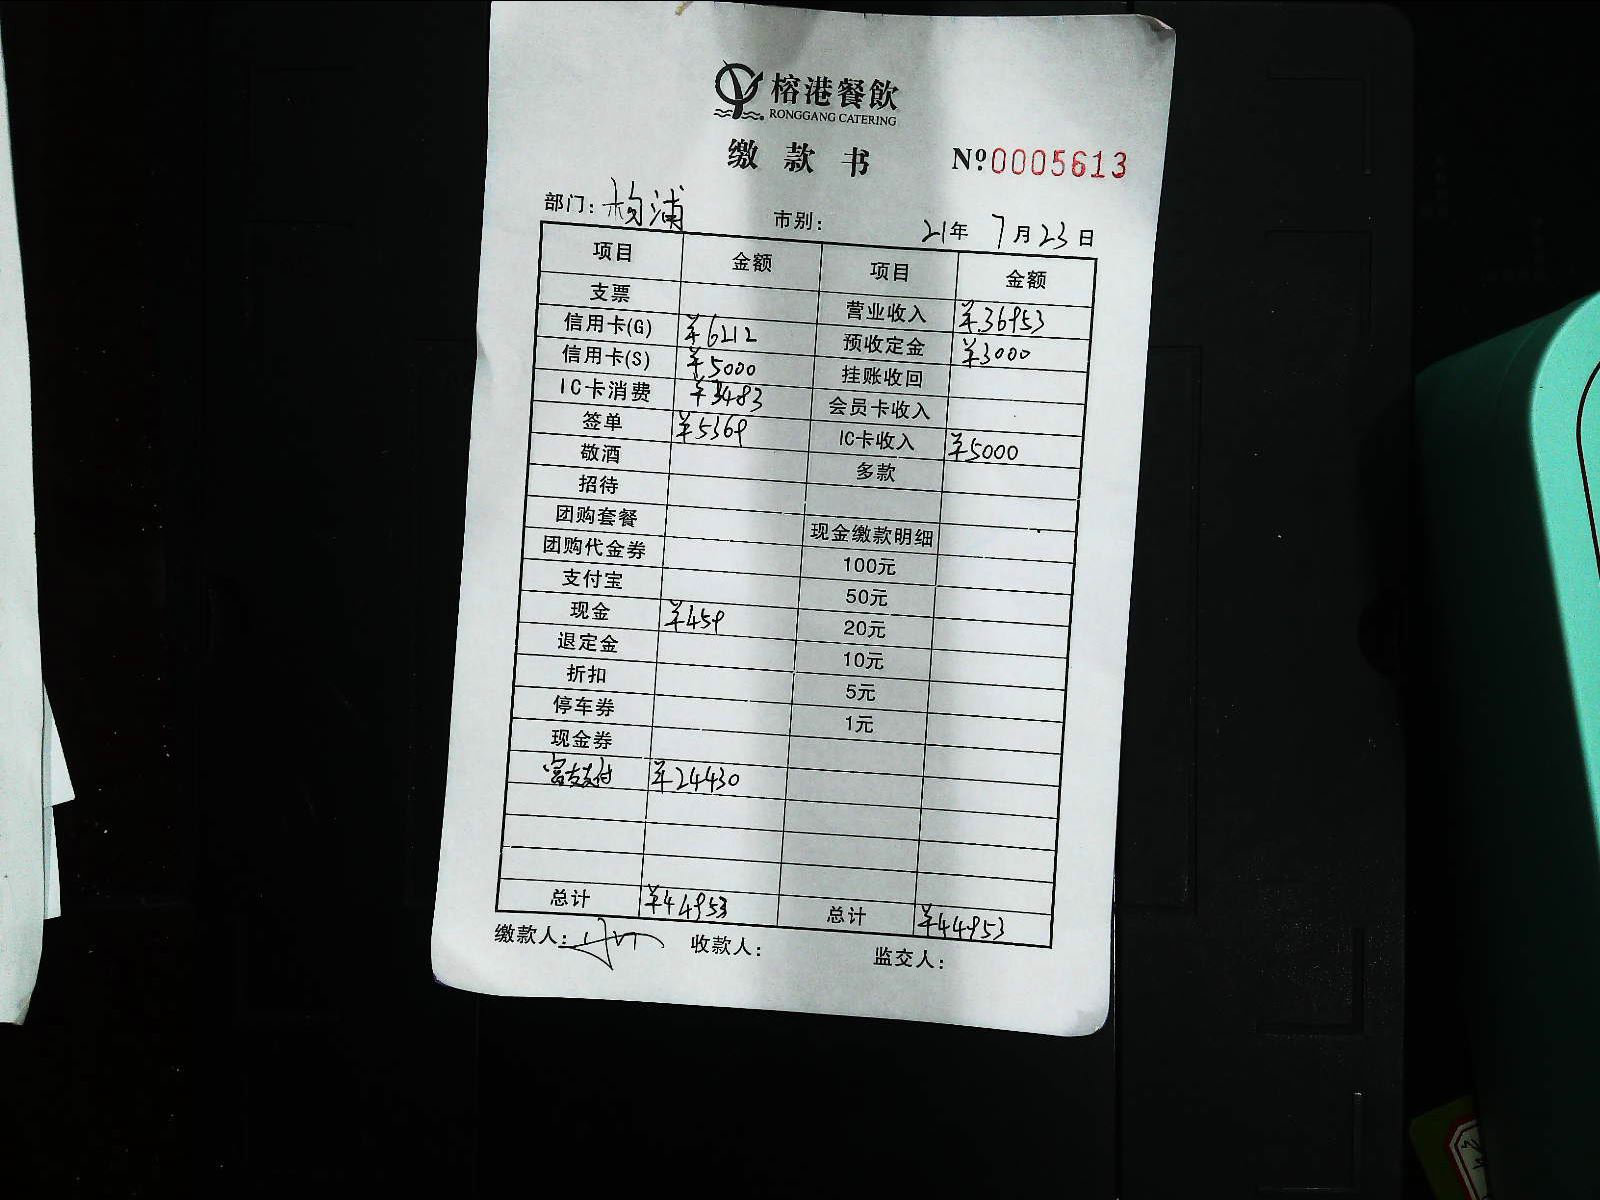 榕港餐飲
RONGGANG CATERING
缴款书 Nº0005613
部门：杨浦 市别： 21年 7月23日
项目 金额 项目 金额
支票 营业收入 ¥36953
信用卡(G) ¥6212 预收定金 ¥3000
信用卡(S) ¥5000 挂账收回
IC卡消费 ¥3483 会员卡收入
签单 ¥5369 IC卡收入 ¥5000
敬酒 多款
招待
团购套餐 现金缴款明细
团购代金券 100元
支付宝 50元
现金 ¥459 20元
退定金 10元
折扣 5元
停车券 1元
现金券
富友支付 ¥24430
总计 ¥44953 总计 ¥44953
缴款人： 收款人： 监交人：